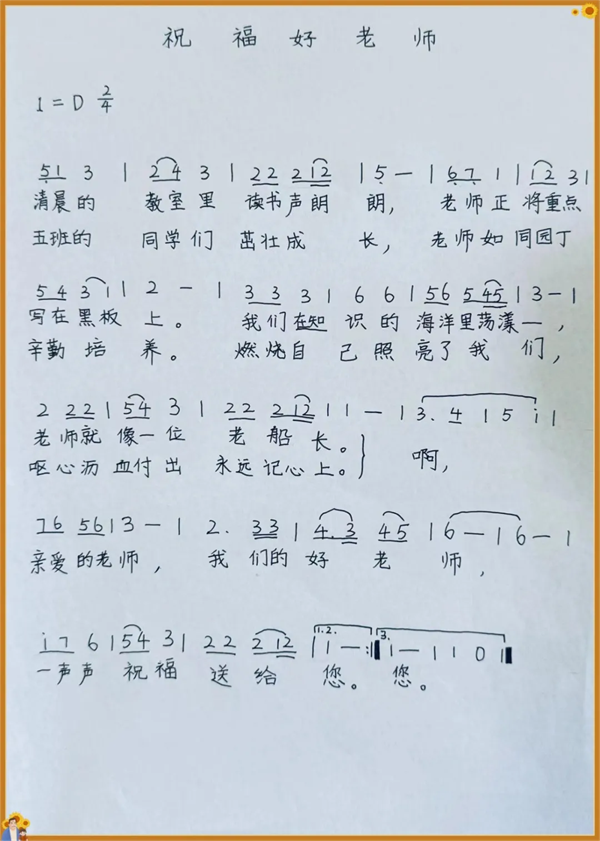 祝福好老师
1=D 2/4
51 3 | 24 3 | 22 212 | 5 — | 67 1 | 12 3 |
清晨的 教室里 读书声朗 朗， 老师正 将重点
五班的 同学们 茁壮成 长， 老师如 同园丁
54 31 | 2 - | 33 3 | 6 6 | 56 545 | 3 - |
写在黑板 上。 我们在知 识的 海洋里荡漾一，
辛勤培 养。 燃烧自 己照 亮了我 们，
2 22 | 54 3 | 22 212 | 1 — | 3. 4 | 5 i |
老师就 像一位 老船 长。 啊，
呕心沥 血付出 永远记心上。
76 56 | 3 — | 2. 33 | 4.3 45 | 6 — | 6 — |
亲爱的老师， 我们的好老师，
i7 6 | 54 3 | 22 212 | 1.2. 1 — :| 3. 1 — | 1 0 |
一声声 祝福 送给 您。 您。